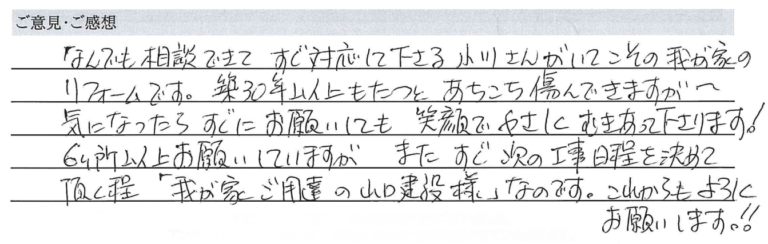 ご意見・ご感想
なんでも相談できて すぐ対応して下さる 小川さんがいてこその我が家の
リフォームです。築30年以上もたつと あちこち傷んできますが〜
気になったら すぐに お願いしても 笑顔で やさしく むきあって下さります!
6ヶ所以上お願いしていますが また すぐ 次の工事日程を決めて
頂く程 「我が家ご用達の山口建設様」なのです。これからもよろしく
お願いします。!!